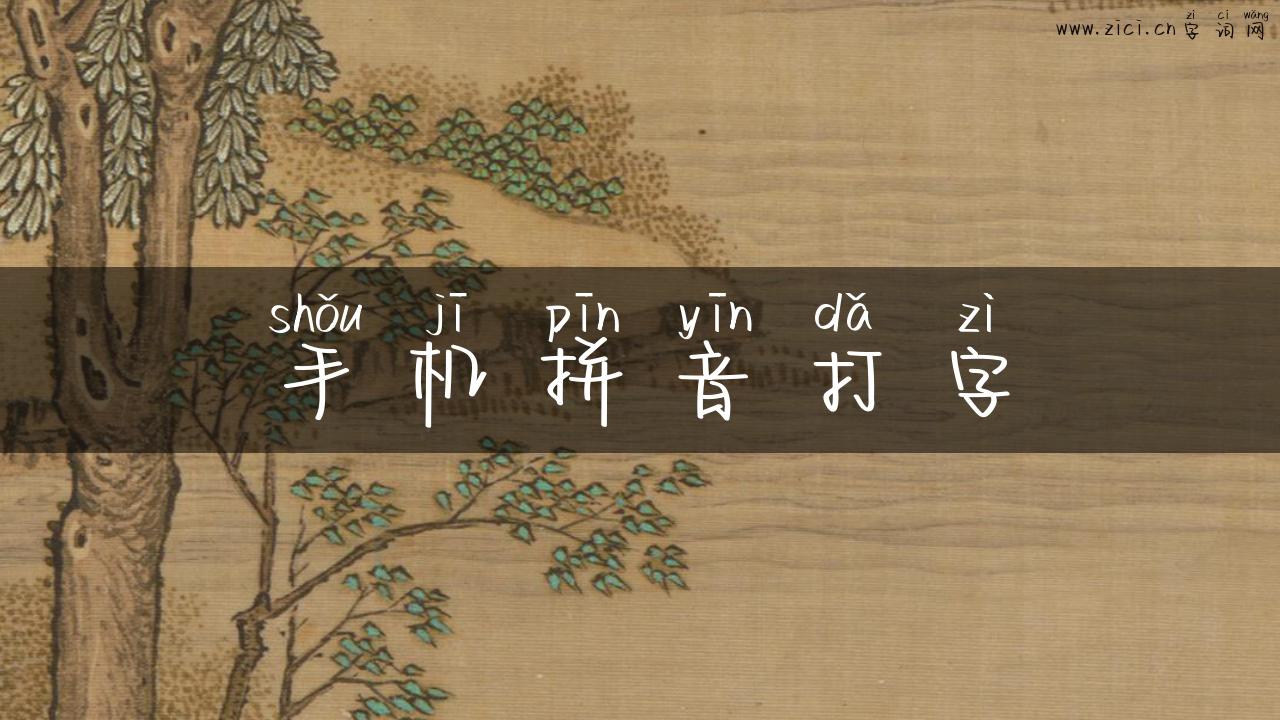 zì cí wǎng
www.zici.cn 字词网
shǒu jī pīn yīn dǎ zì
手机拼音打字